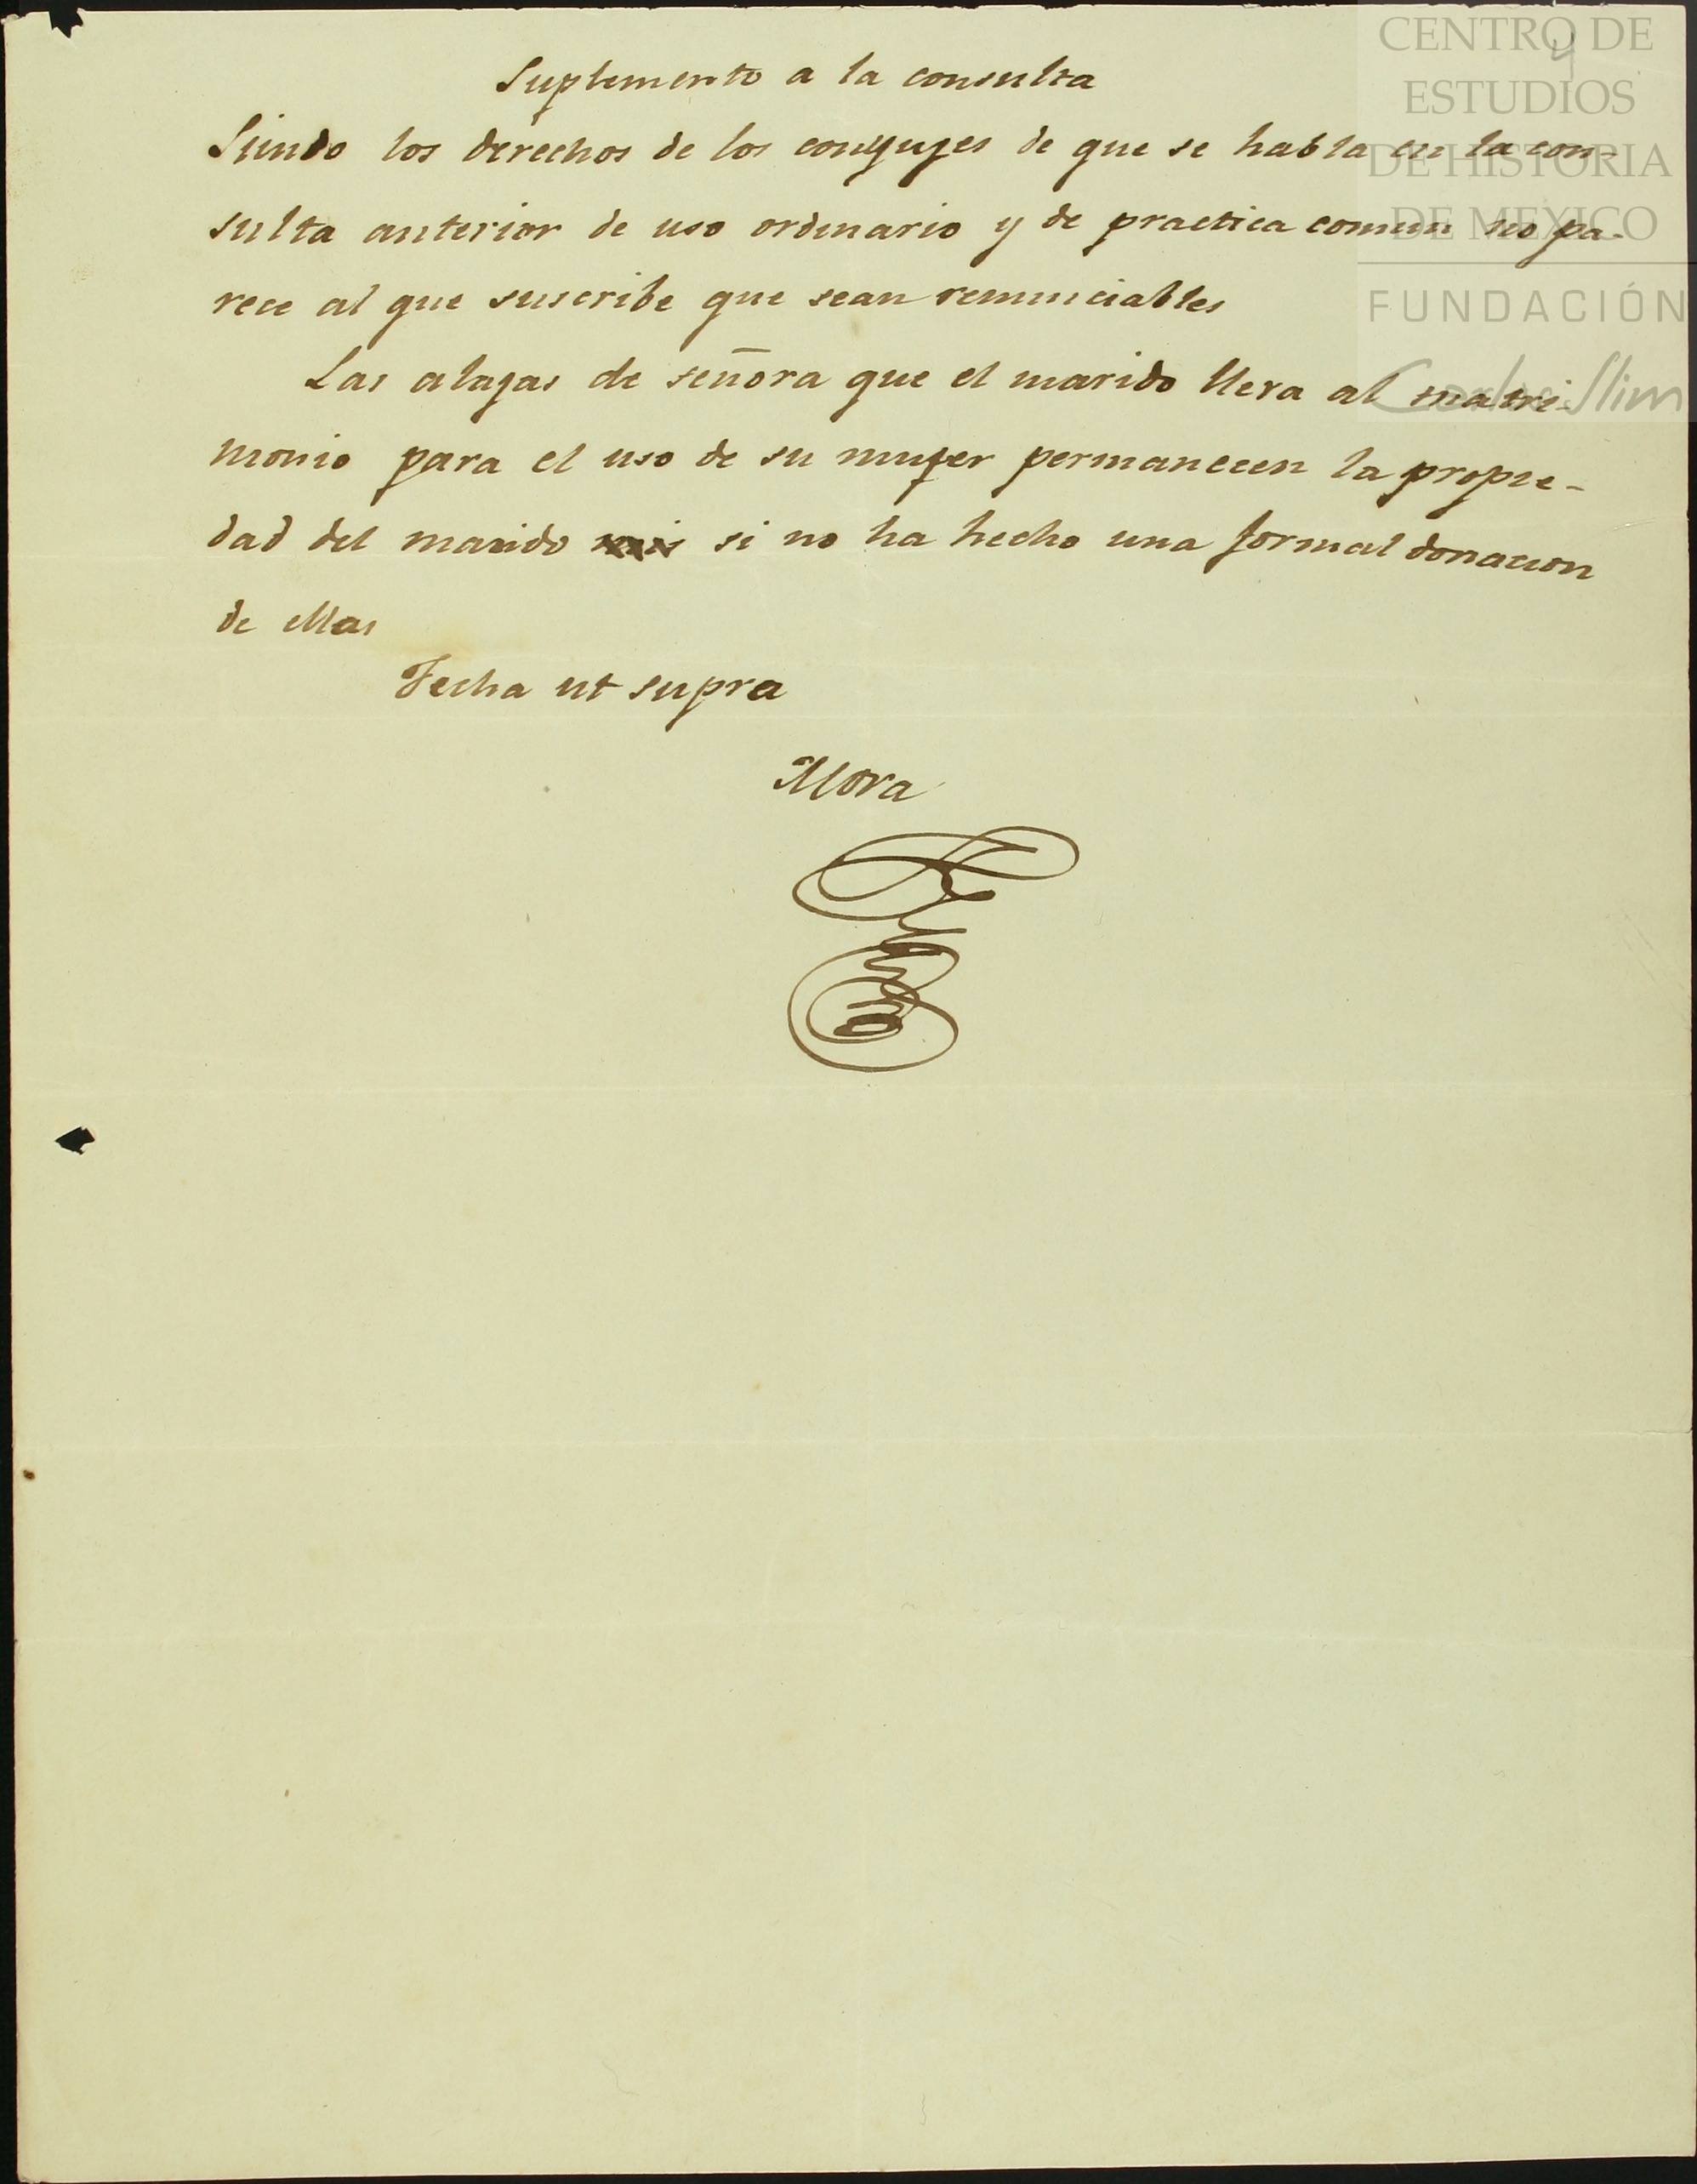 CENTRO DE
ESTUDIOS
DE HISTORIA
DE MEXICO
FUNDACIÓN
Carlos Slim
4
Suplemento a la consulta
Siendo los derechos de los conyuges de que se habla en la con-
sulta anterior de uso ordinario y de practica comun no pa-
rece al que suscribe que sean renunciables
Las alajas de señora que el marido lleva al matri-
monio para el uso de su mujer permanecen la propie-
dad del marido si no ha hecho una formal donacion
de ellas
Fecha ut supra
Mora